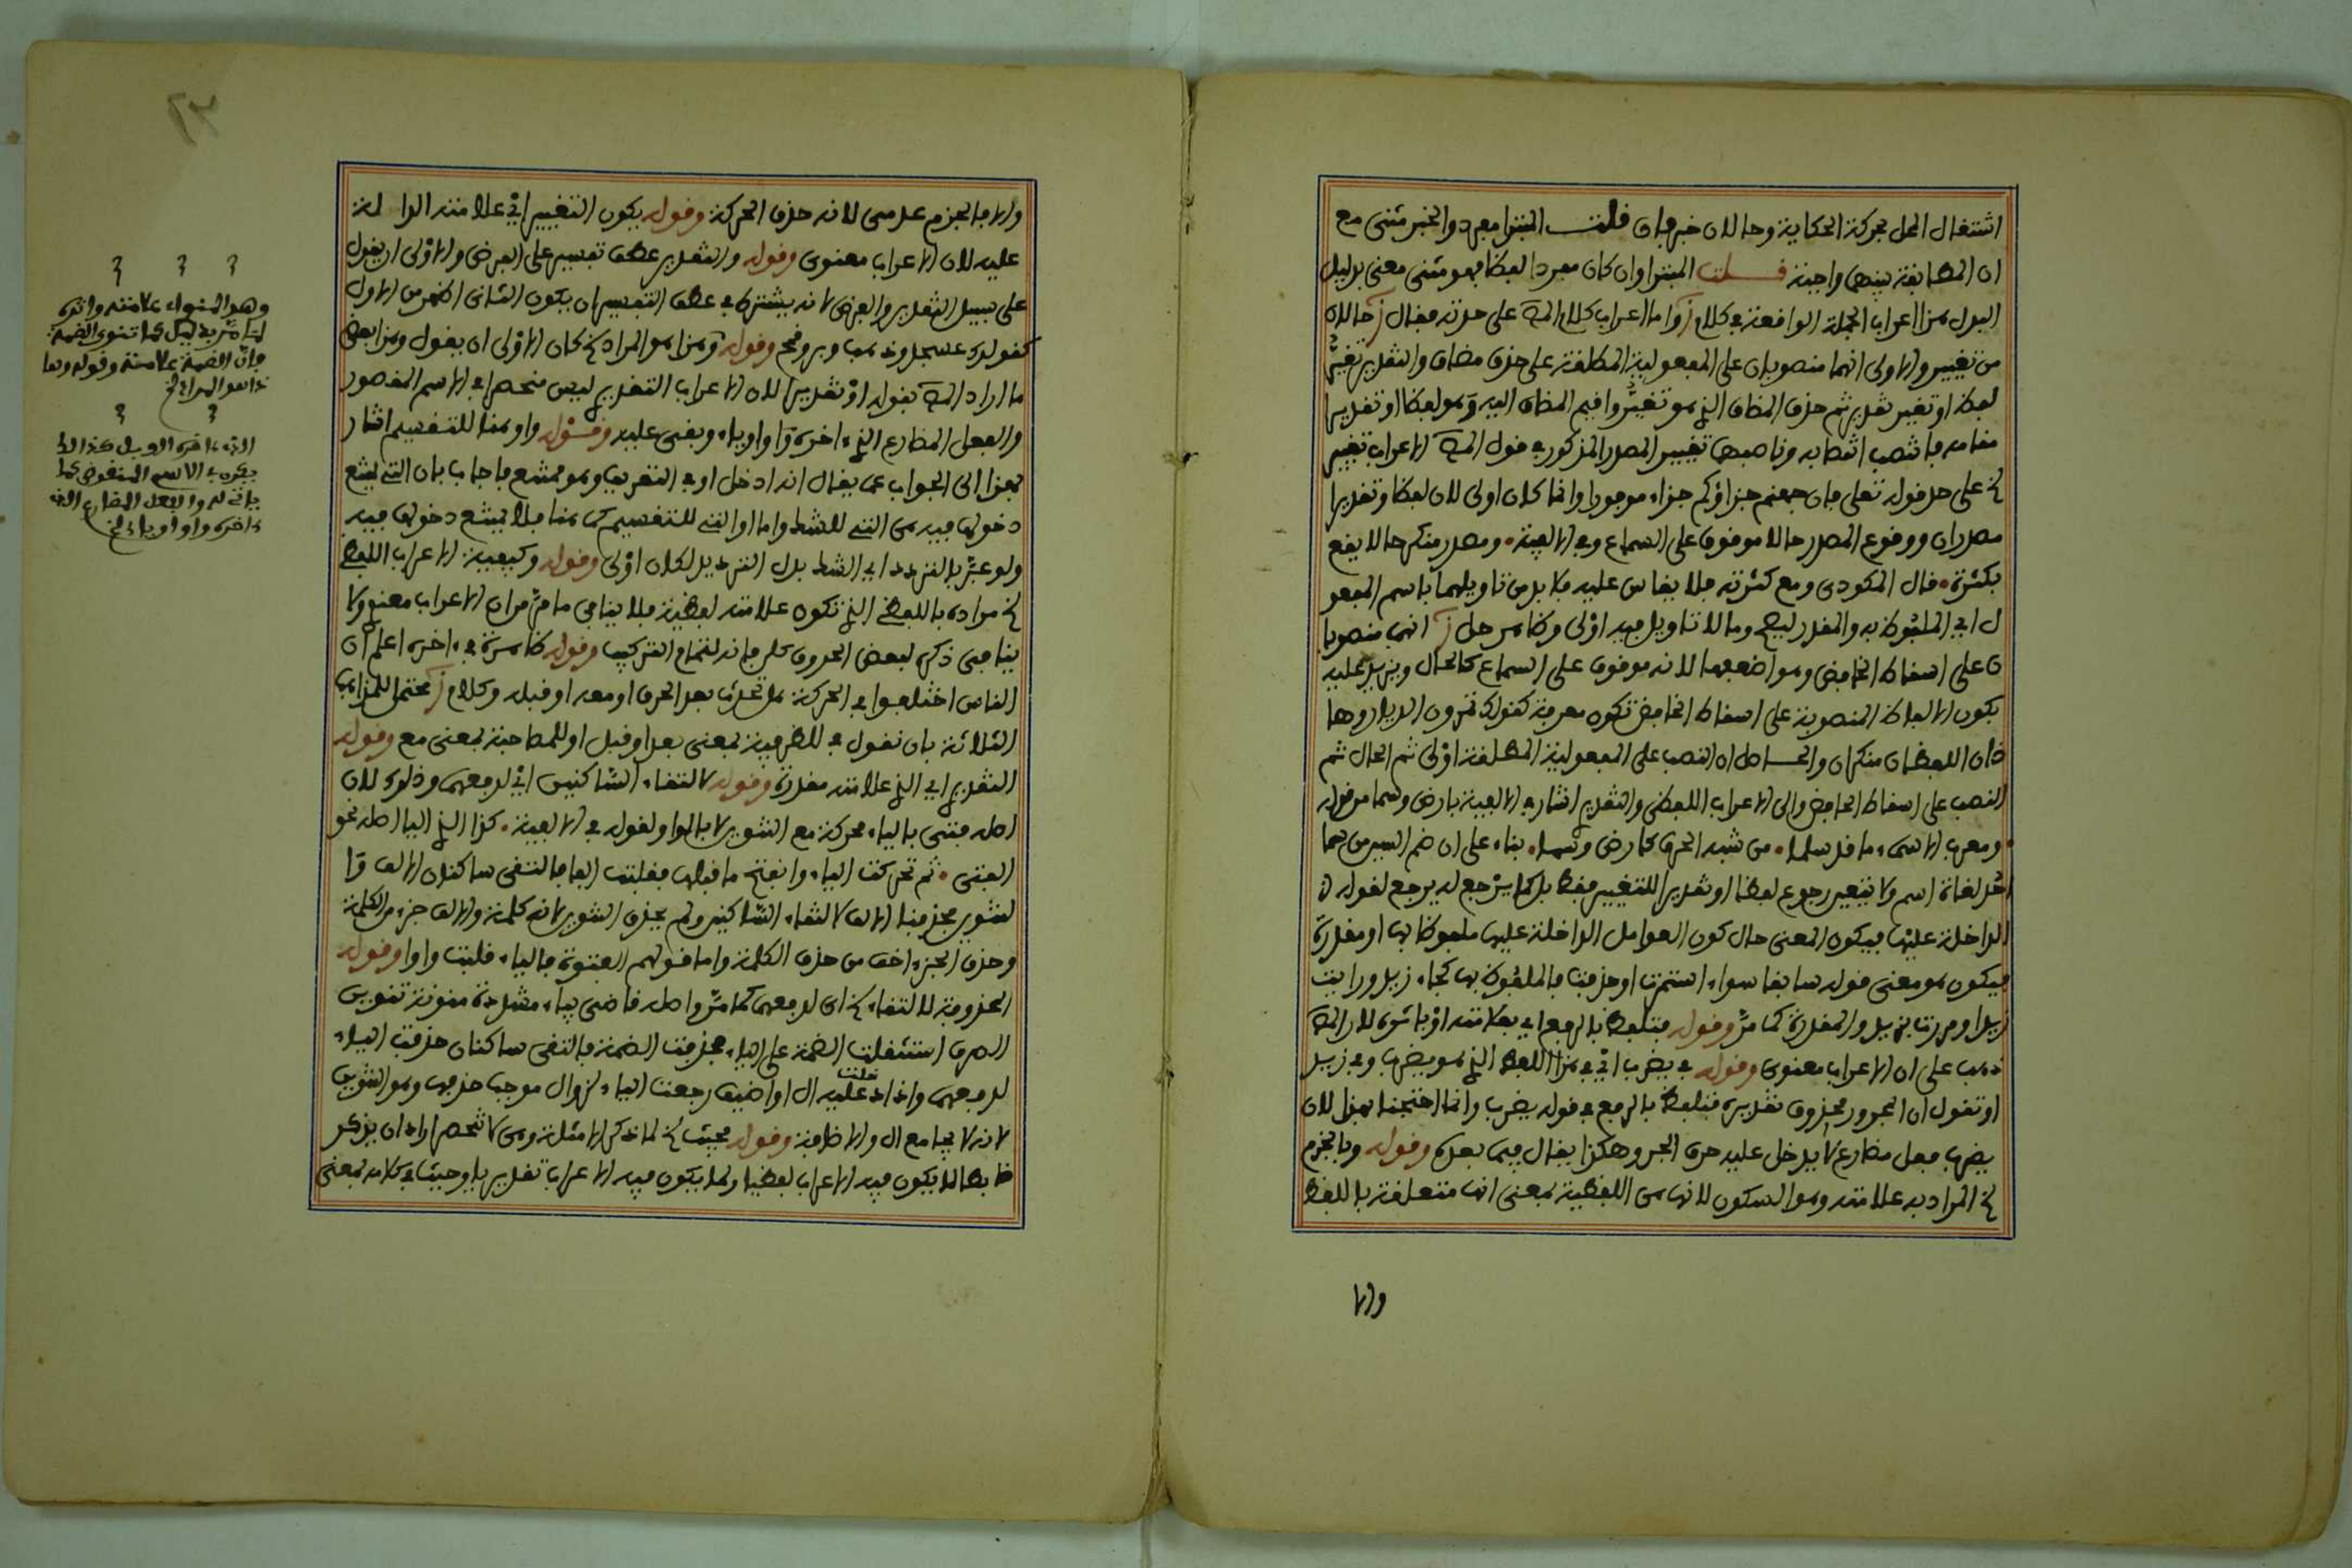 اشتغال المحل بحركة الحكاية وحالان خبر فإن قلت المبتدا مفرد والخبر مثنى مع
ان المطابقة بينهما واجبة قلت المبتدا وان كان مفردا لفظا فهو مثنى معنى بدليل
البدل هذا اعراب الجملة الواقعة في كلام ز واما اعراب كلام المص على حدته فقال ز حالان
من تغيير والاولى انهما منصوبان على المفعولية المطلقة على حذف مضاف والتقدير تغير
لفظ او تغير تقدير ثم حذف المضاف الذي هو تغير واقيم المضاف اليه وهو لفظا او تقديرا
مقامه فانتصب انتصابه وناصبهما تغيير المصدر المذكور في قول المص الاعراب تغيير
الخ على حد قوله تعلى فان جهنم جزاؤكم جزاء موفورا وانما كان اولى لان لفظا وتقديرا
مصدران ووقوع المصدر حالا موقوف على السماع وفي الالفية • ومصدر منكر حالا يقع
بكثرة • قال المكودى ومع كثرته فلا يقاس عليه فلا بد من تاويلهما باسم المفعو
ل اي الملفوظ به والمقدر ليصح وما لا تاويل فيه اولى وظاهر حل ز انهما منصوبا
ن على اسقاط الخافض وهو اضعفها لانه موقوف على السماع كالحال ويزيد عليه
بكون الالفاظ المنصوبة على اسقاط الخافض تكون معرفة كقولك تمرون الديار وها
ذان اللفظان منكران والحاصل ان النصب على المفعولية المطلقة اولى ثم الحال ثم
النصب على اسقاط الخافض والى الاعراب اللفظي والتقديري اشار في الالفية بارض وسما من قوله
• ومعرب الاسماء ما قد سلما • من شبه الحرف كارض وسما • بناء على ان ضم السين من سما
احد لغات اسم ولا يتعين رجوع لفظا او تقديرا للتغيير فقط بل كما يرجع له يرجع لقوله
الداخلة عليها فيكون المعنى حال كون العوامل الداخلة عليها ملفوظا بها او مقدرة
فيكون هو معنى قوله سابقا سواء استمرت او حذفت فالملفوظ بها كجاء زيد ورايت
زيدا ومررت بزيد والمقدرة كما مر وقوله فتلفظ بالرفع اي بعلامته او باثره لان المص
ذهب على ان الاعراب معنوى وقوله في يضرب اي في هذا اللفظ الذي هو يضرب وفي زيد
او تقول ان المجرور محذوف تقديره فتلفظ بالرفع في قوله يضرب وانما احتجنا لهذا لان
يضرب فعل مضارع لا يدخل عليه حرف الجر وهكذا يقال فيما بعده وقوله وبالجزم
الخ المراد به علامته وهو السكون لانها هي اللفظية بمعنى انها متعلقة باللفظ
والا
٢٣
والا فالجزم عدمى لانه حذف الحركة وقوله يكون التغيير اي علامته الدا لة
عليه لان الاعراب معنوى وقوله والتقدير عطف تفسير على الفرض والاولى ان يقول
على سبيل التقدير والفرض لانه يشترط في عطف التفسير ان يكون الثانى اظهر من الاول
كقولك عسجد وذهب وبر وقمح وقوله وهذا هو المراد الخ كان الاولى ان يقول وهذا بعض
ما اراد المص بقوله او تقديرا لان الاعراب التقديري ليس منحصرا في الاسم المقصور
والفعل المضارع الذي اخره واوا وياء وبقى عليه وقوله واو هنا للتقسيم اشار
بهذا الى الجواب عما يقال انه ادخل او في التعريف وهو ممتنع فاجاب بان التي يمتنع
دخولها فيه هي التي للشك واما او التي للتقسيم كما هنا فلا يمتنع دخولها فيه
ولو عبر بالتردد اي الشك بدل الترديد لكان اولى وقوله وكيفية الاعراب اللفظي
الخ مراده باللفظي الذي تكون علامته لفظية فلا ينافي ما مر من ان الاعراب معنوي ولا
ينافي ذكره لبعض الحروف كلم فانه لتمام التركيب وقوله ظاهرة في اخره اعلم ان
الناس اختلفوا في الحركة هل تحدث بعد الحرف او معه او قبله وكلام ز محتمل للمذاهب
الثلاثة بان نقول في للظرفية بمعنى بعد او قبل او للمصاحبة بمعنى مع وقوله
التقديري اي الذي علامته مقدرة وقوله لالتقاء الساكنين اي لدفعهما وذلك لان
اصله فتى بالياء محركة مع التنوين لا بالواو لقوله في الالفية • كذا الذي اليا اصله نحو
الفتى • ثم تحركت الياء وانفتح ما قبلها فقلبت الفا فالتقى ساكنان الالف وا
لتنوين فحذفنا الالف لالتقاء الساكنين ولم يحذف التنوين لانه كلمة والالف جزء من الكلمة
وحذف الجزء اخف من حذف الكلمة واما قولهم الفتوة فالياء قلبت واوا وقوله
المحذوفة لالتقاء الخ اى لدفعهما كما مر واصله قاضى بياء مشددة منونة تنوين
الصرف استثقلت الضمة على الياء فحذفت الضمة فالتقى ساكنان حذفت الياء
لدفعهما واذا دخلت عليه ال او اضيف رجعت الياء لزوال موجب حذفها وهو التنوين
لانه لا يجامع ال والاضافة وقوله فحيث الخ لما ذكر الامثلة وهى لا تنحصر اراد ان يذكر
ضابطا لما يكون فيه الاعراب لفظيا ولما يكون فيه الاعراب تقديريا وحيث في كلامه بمعنى
وهو المنواء علامته واثره
لما مر في ليل كما تنوى الضمة
فان الضمة علامته وقوله وها
ذا هو المراد الخ
الذي اخره الف بل هذا الذا
يجري في الاسم المنقوص كما
ياتي له والفعل المضارع الذي
ءاخره واوا وياء الخ